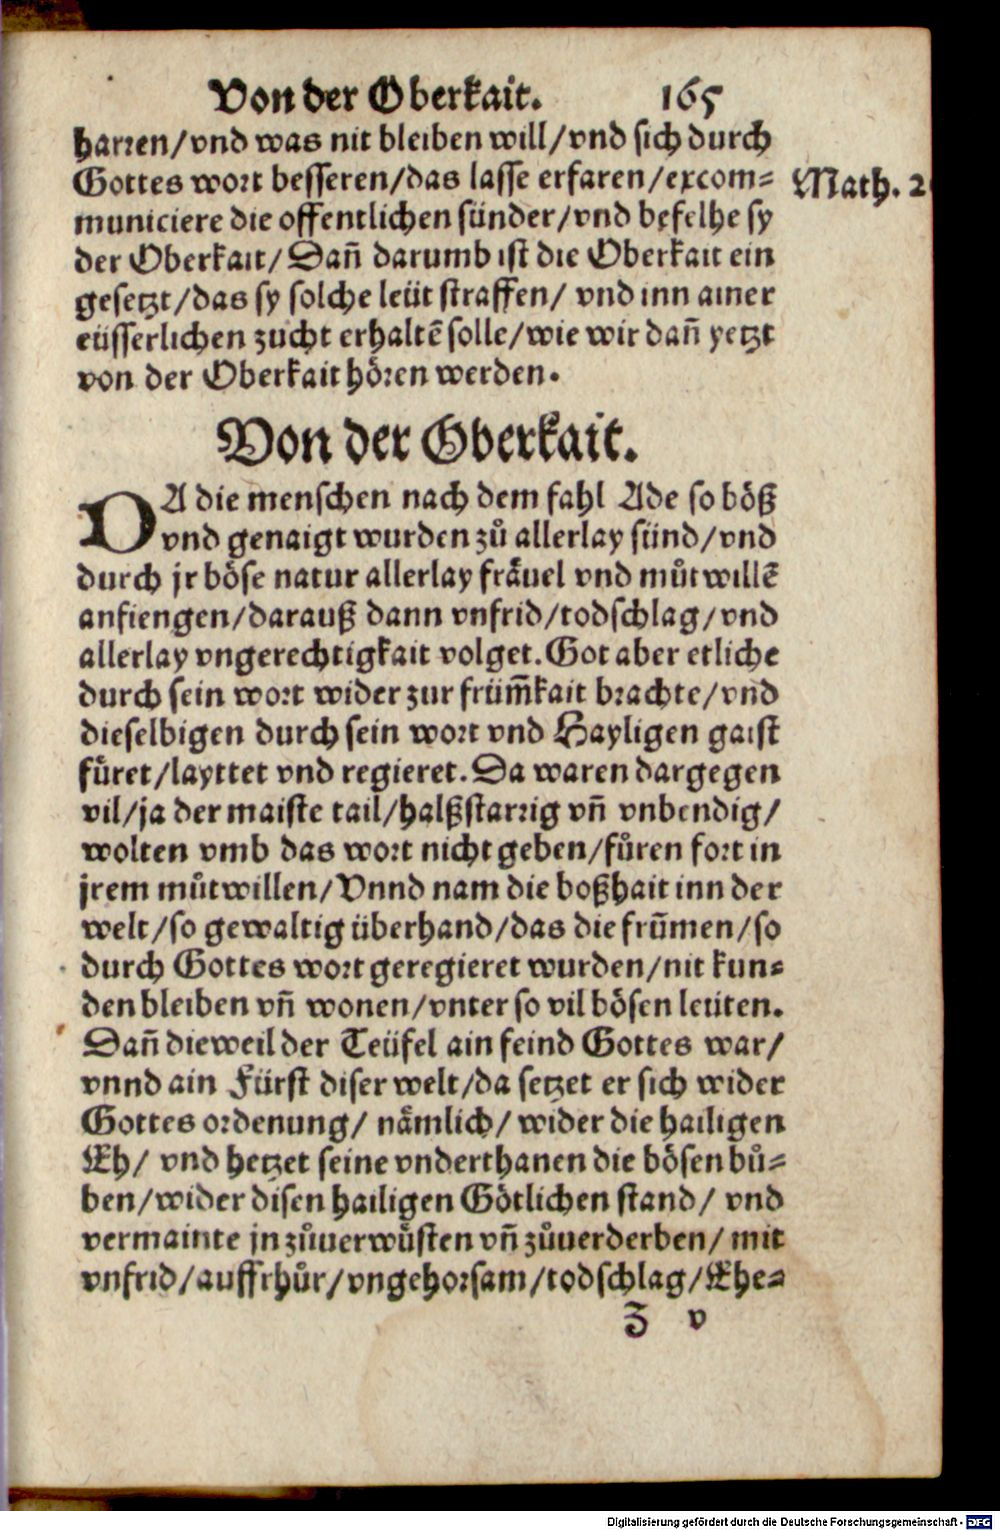 Von der Oberkait. 165
harren/vnd was nit bleiben will/vnd sich durch
Gottes wort besseren/das lasse erfaren/excom⸗
Math. 2
municiere die offentlichen sünder/vnd befelhe sy
der Oberkait/Dañ darumb ist die Oberkait ein
gesetzt/das sy solche leüt straffen/ vnd inn ainer
eüsserlichen zucht erhaltẽ solle/wie wir dañ yetzt
von der Oberkait hören werden.
Von der Oberkait.
DA die menschen nach dem fahl Ade so böß
vnd genaigt wurden zů allerlay sünd/vnd
durch jr böse natur allerlay fräuel vnd můtwillẽ
anfiengen/darauß dann vnfrid/todschlag/vnd
allerlay vngerechtigkait volget. Got aber etliche
durch sein wort wider zur früm̃kait brachte/vnd
dieselbigen durch sein wort vnd Hayligen gaist
füret/layttet vnd regieret. Da waren dargegen
vil/ja der maiste tail/halßstarrig vñ vnbendig/
wolten vmb das wort nicht geben/fůren fort in
jrem můtwillen/Vnnd nam die boßhait inn der
welt/so gewaltig überhand/das die frũmen/so
durch Gottes wort geregieret wurden/nit kun⸗
den bleiben vñ wonen/vnter so vil bösen leüten.
Dañ dieweil der Teüfel ain feind Gottes war/
vnnd ain Fürst diser welt/da setzet er sich wider
Gottes ordenung/ nämlich/ wider die hailigen
Eh/ vnd hetzet seine vnderthanen die bösen bů⸗
ben/wider disen hailigen Götlichen stand/ vnd
vermainte jn zůuerwüsten vñ zůuerderben/ mit
vnfrid/auffrhůr/vngehorsam/todschlag/Ehe⸗
Z v
Digitalisierung gefördert durch die Deutsche Forschungsgemeinschaft - DFG